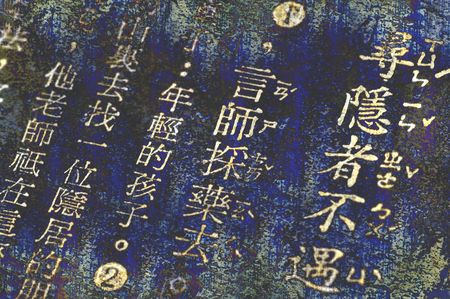 尋隱者不遇
①，言師採藥去
：年輕的孩子。②
山裏去找一位隱居的朋
他老師祇在這